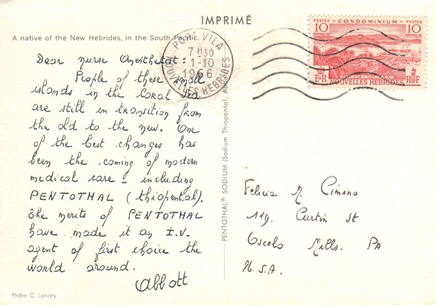 IMPRIMÉ
A native of the New Hebrides, in the South Pacific.
Dear nurse Anesthetist:
People of these small
islands in the Coral Sea
are still in transition from
the old to the new. One
of the best changes has
been the coming of modern
medical care - including
PENTOTHAL (thiopental).
The merits of PENTOTHAL
have made it an I.V.
agent of first choice the
world around.
Abbott
Photo C. Landry
PENTOTHAL® SODIUM (Sodium Thiopental,
PORT VILA
7H30
1-10
1966
NOUVELLES HEBRIDES
POSTES CONDOMINIUM POSTES
10 10
E R NOUVELLES HEBRIDES R F
Felicia M. Cimono
119 Curtin St
Osceola Mills. PA
U.S.A.